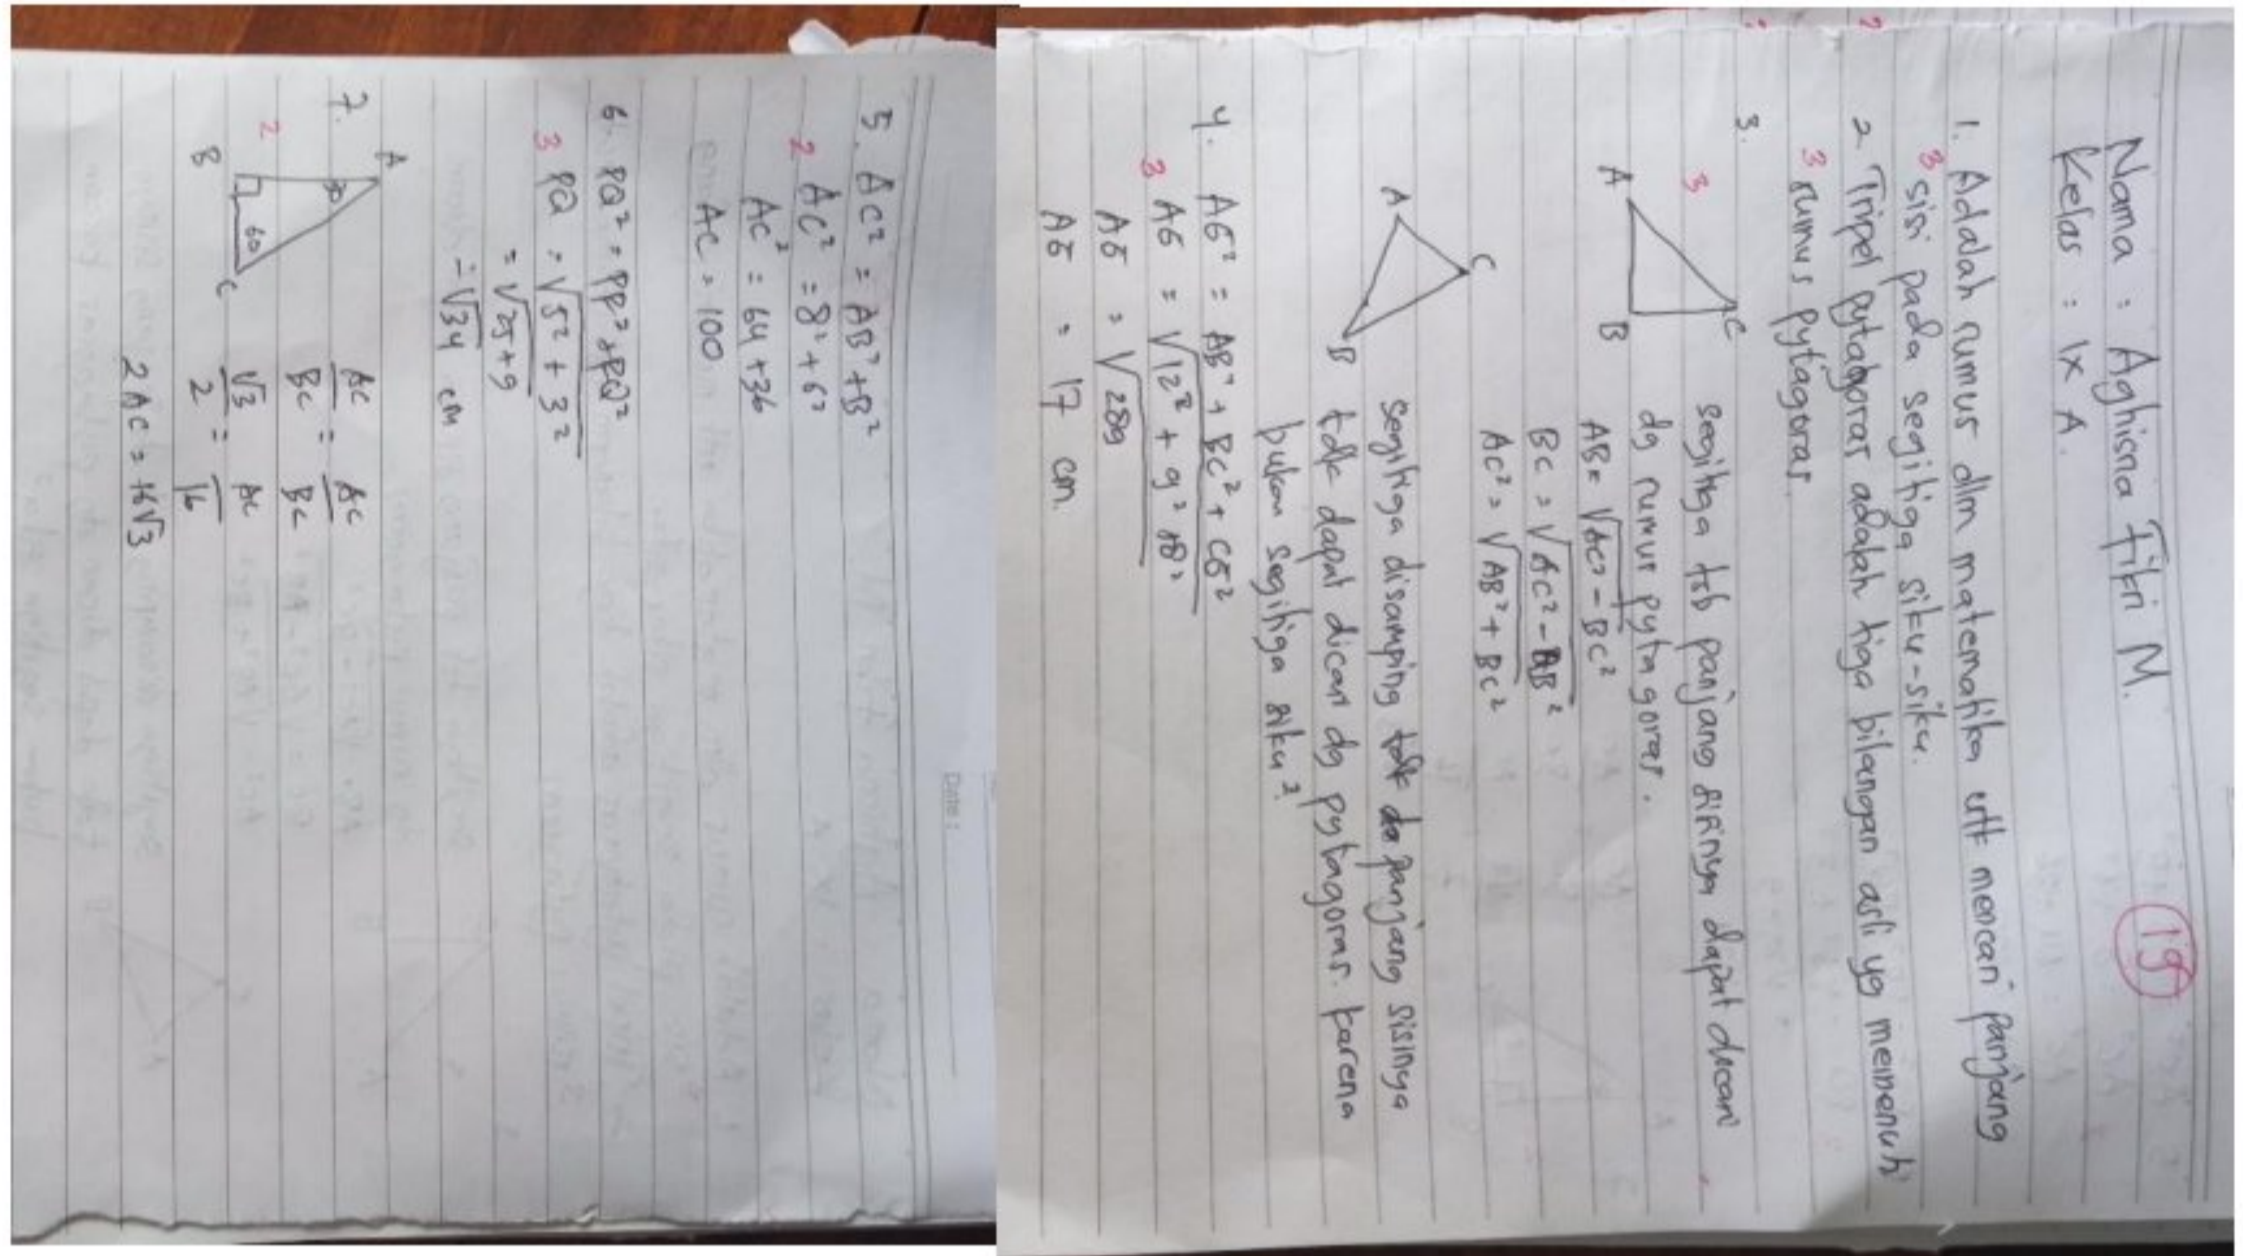 Nama : Aghisna Fikri M.
19
Kelas : IX A.
1. Adalah rumus dlm matematika utk mencari panjang
3 sisi pada segitiga siku-siku.
2. Tripel pytagoras adalah tiga bilangan asli yg memenuhi
3 rumus pytagoras.
3.
3
A
B
C
segitiga tsb panjang sisinya dapat dicari
dg rumus pytagoras.
AB = √AC² - BC²
BC = √AC² - AB²
AC² = √AB² + BC²
A
B
C
segitiga disamping panjang sisinya
tdk dapat dicari dg pytagoras. karena
bukan segitiga siku².
4. AG² = AB² + BC² + CG²
3 AG = √12² + 9² + 8²
AG = √289
AG = 17 cm.
Date :
5. AC² = AB² + B²
2 AC² = 8² + 6²
AC² = 64 + 36
AC = 100
6. PQ² = PP² + PQ²
3 PQ = √5² + 3²
= √25 + 9
= √34 cm
7.
2
A
30
B
60
C
AC/BC = AC/BC
√3/2 = AC/16
2 AC = 16√3